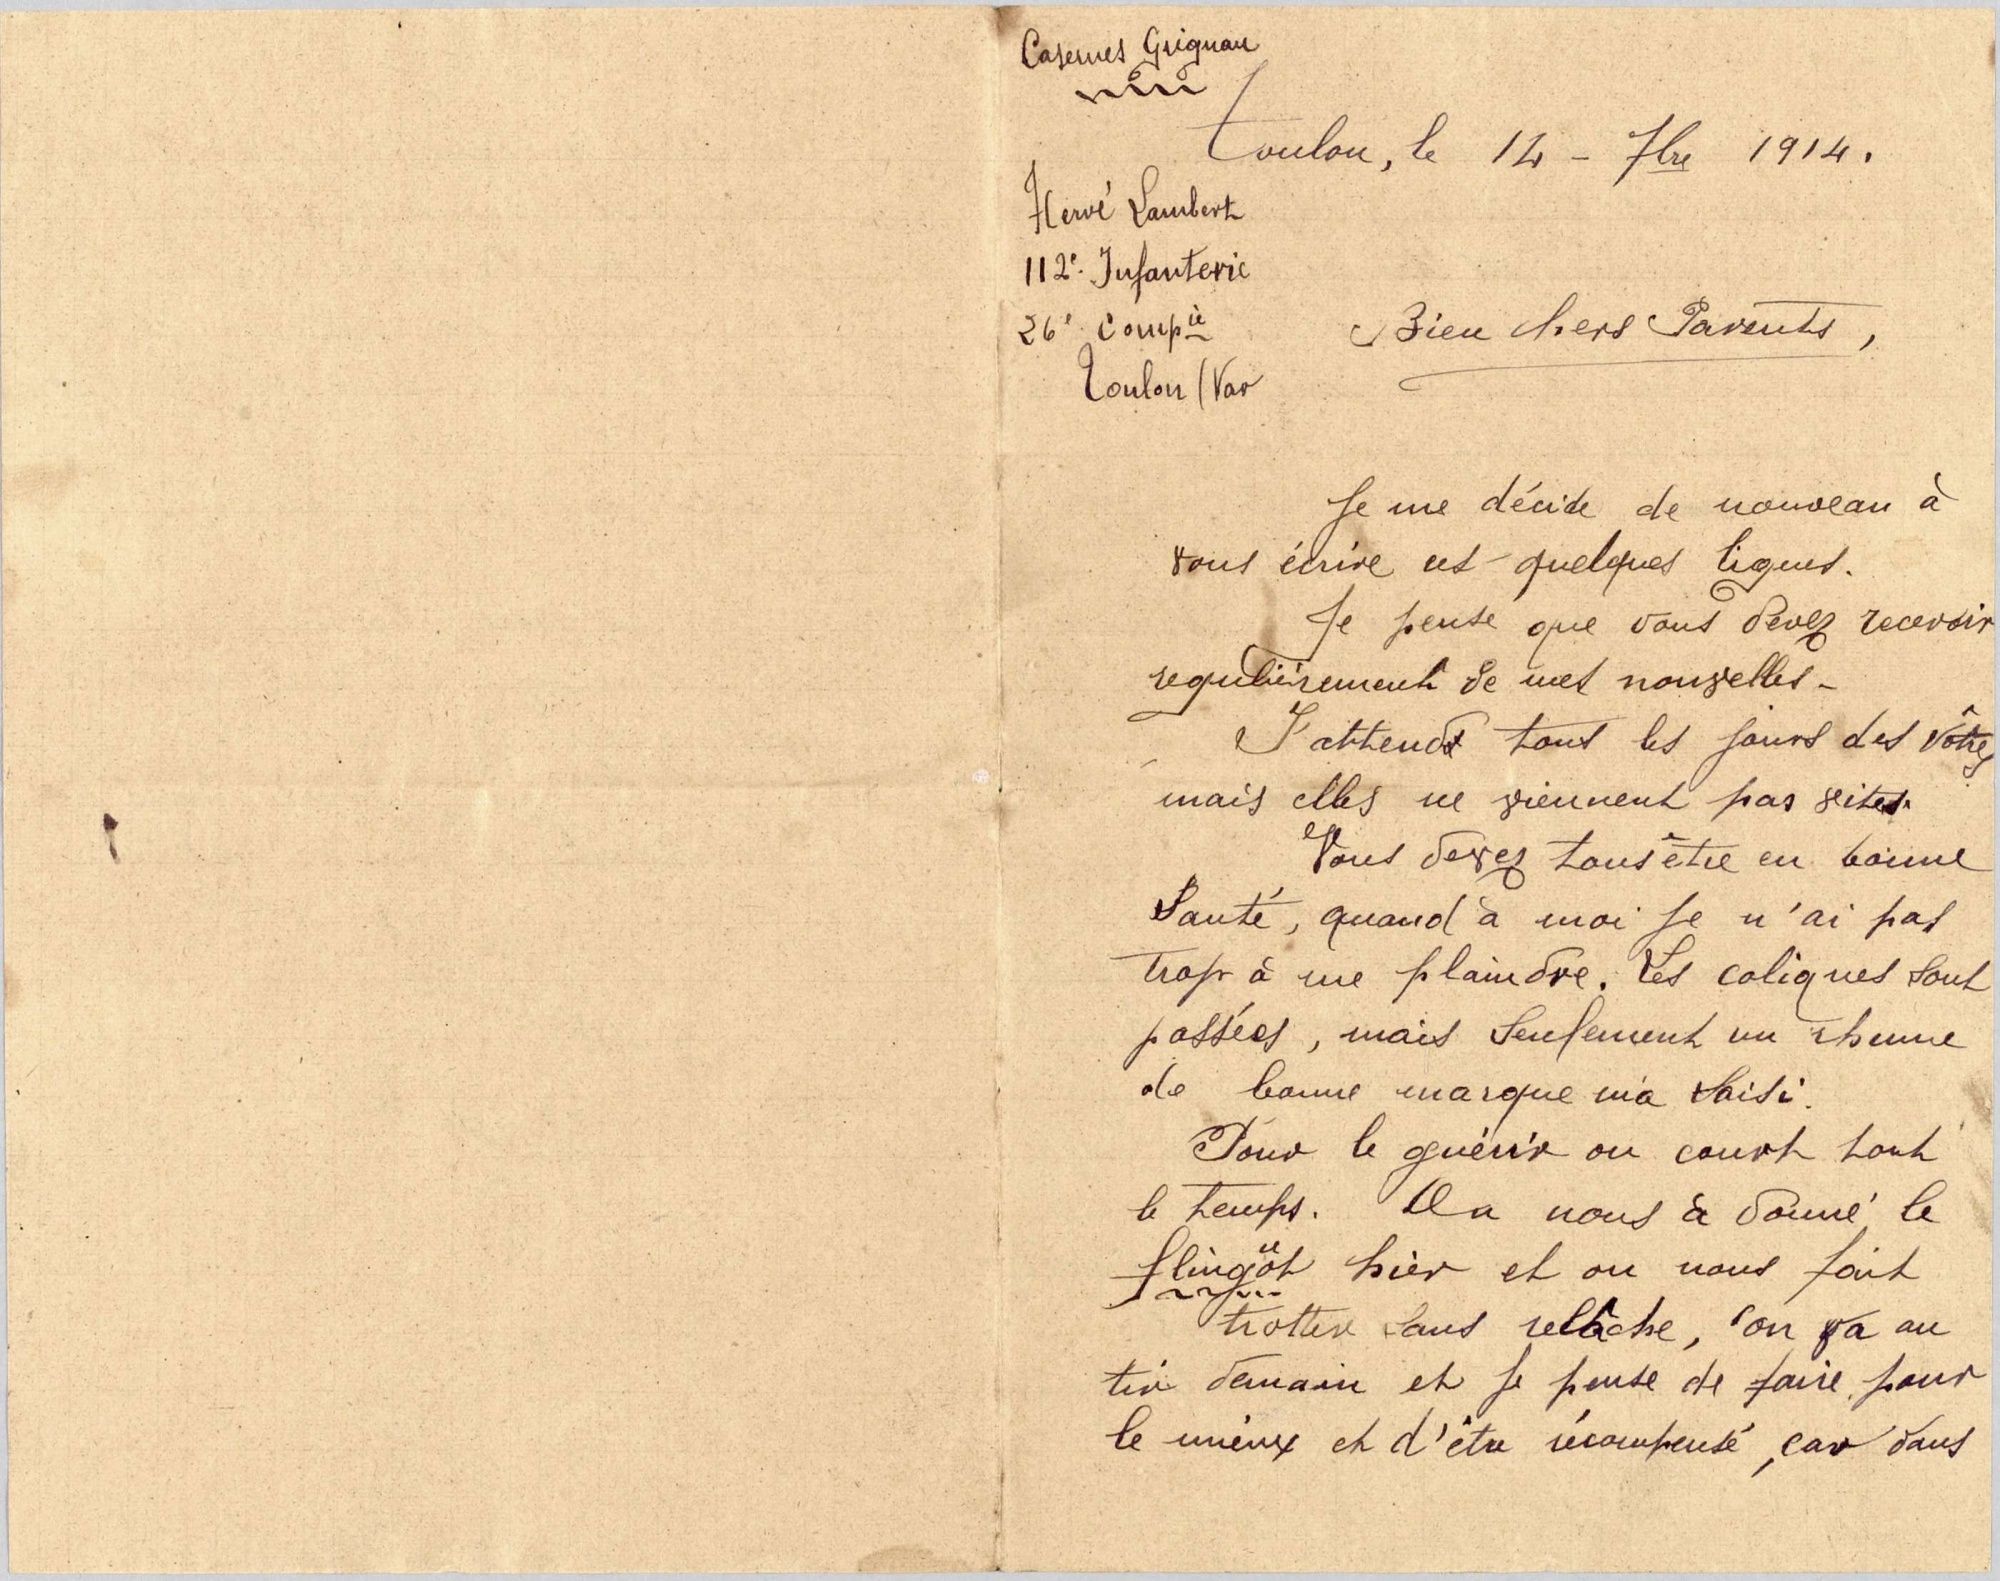 Casernes Grignan
Toulon, le 14 - 7bre 1914.
Hervé Lambert
112e. Infanterie
26e Compie
Toulon (Var
Bien chers Parents,
Je me décide de nouveau à
vous écrire ces quelques lignes.
Je pense que vous devez recevoir
regulièrement de mes nouvelles -
J'attends tous les jours des vôtres
mais elles ne viennent pas vites.
Vous devez tous être en bonne
Santé, quand à moi je n'ai pas
trop à me plaindre. Les coliques sont
passées, mais seulement un rhume
de bonne marque m'a saisi.
Pour le guérir on court tout
le temps. On nous à donné le
flingot hier et on nous fait
trotter sans relâche, on va au
tir demain et je pense de faire pour
le mieux et d'être récompensé, car dans